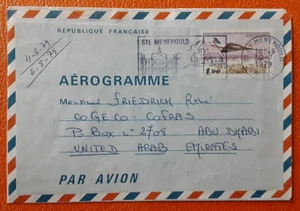 RÉPUBLIQUE FRANÇAISE
4-8-79
6-8-79
STE MENEHOULD
1,90
1979
AÉROGRAMME
Monsieur FRIEDRICH René
COGECO-COFRAS
PO BOX L° 2708 ABU DHABI
UNITED ARAB EMIRATES
PAR AVION